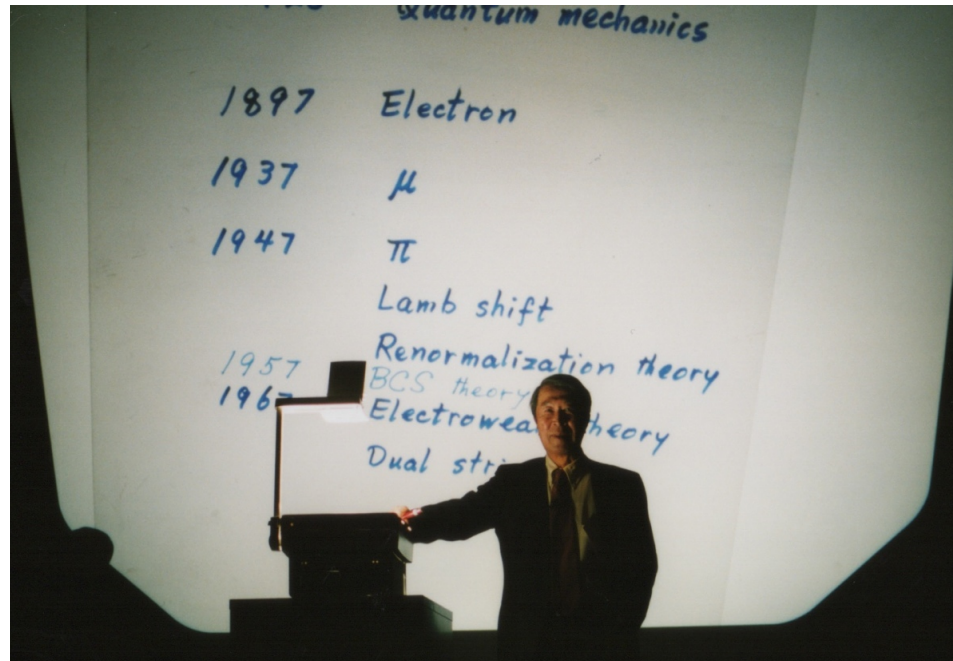 Quantum mechanics
1897 Electron
1937 μ
1947 π
Lamb shift
Renormalization theory
1957 BCS theory
Electroweak theory
Dual